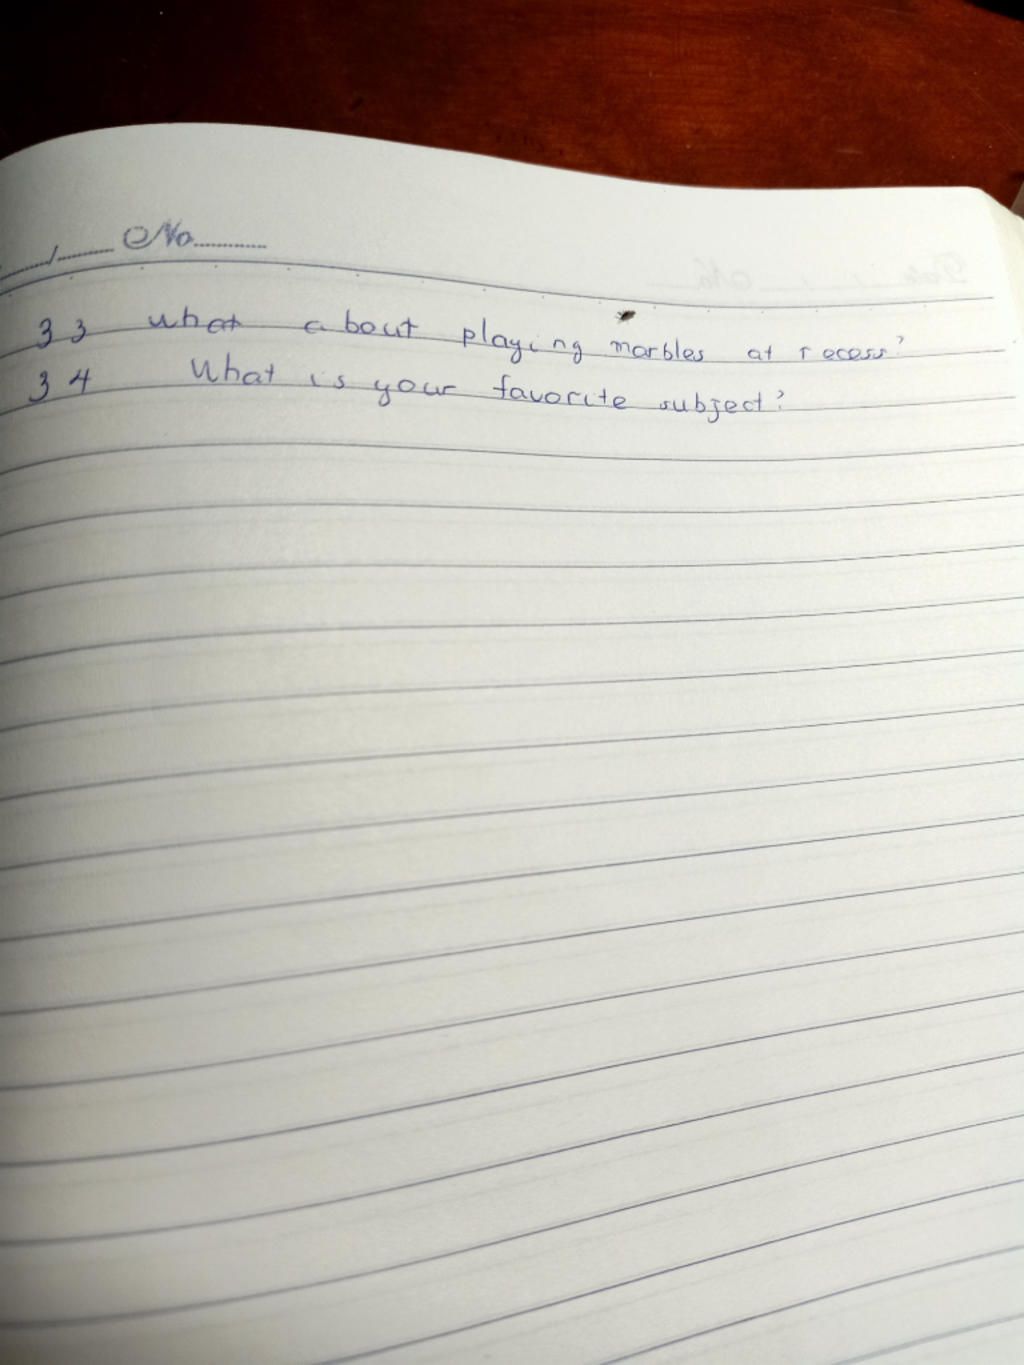 / No
33 what about playing marbles at recess?
34 What is your favorite subject?